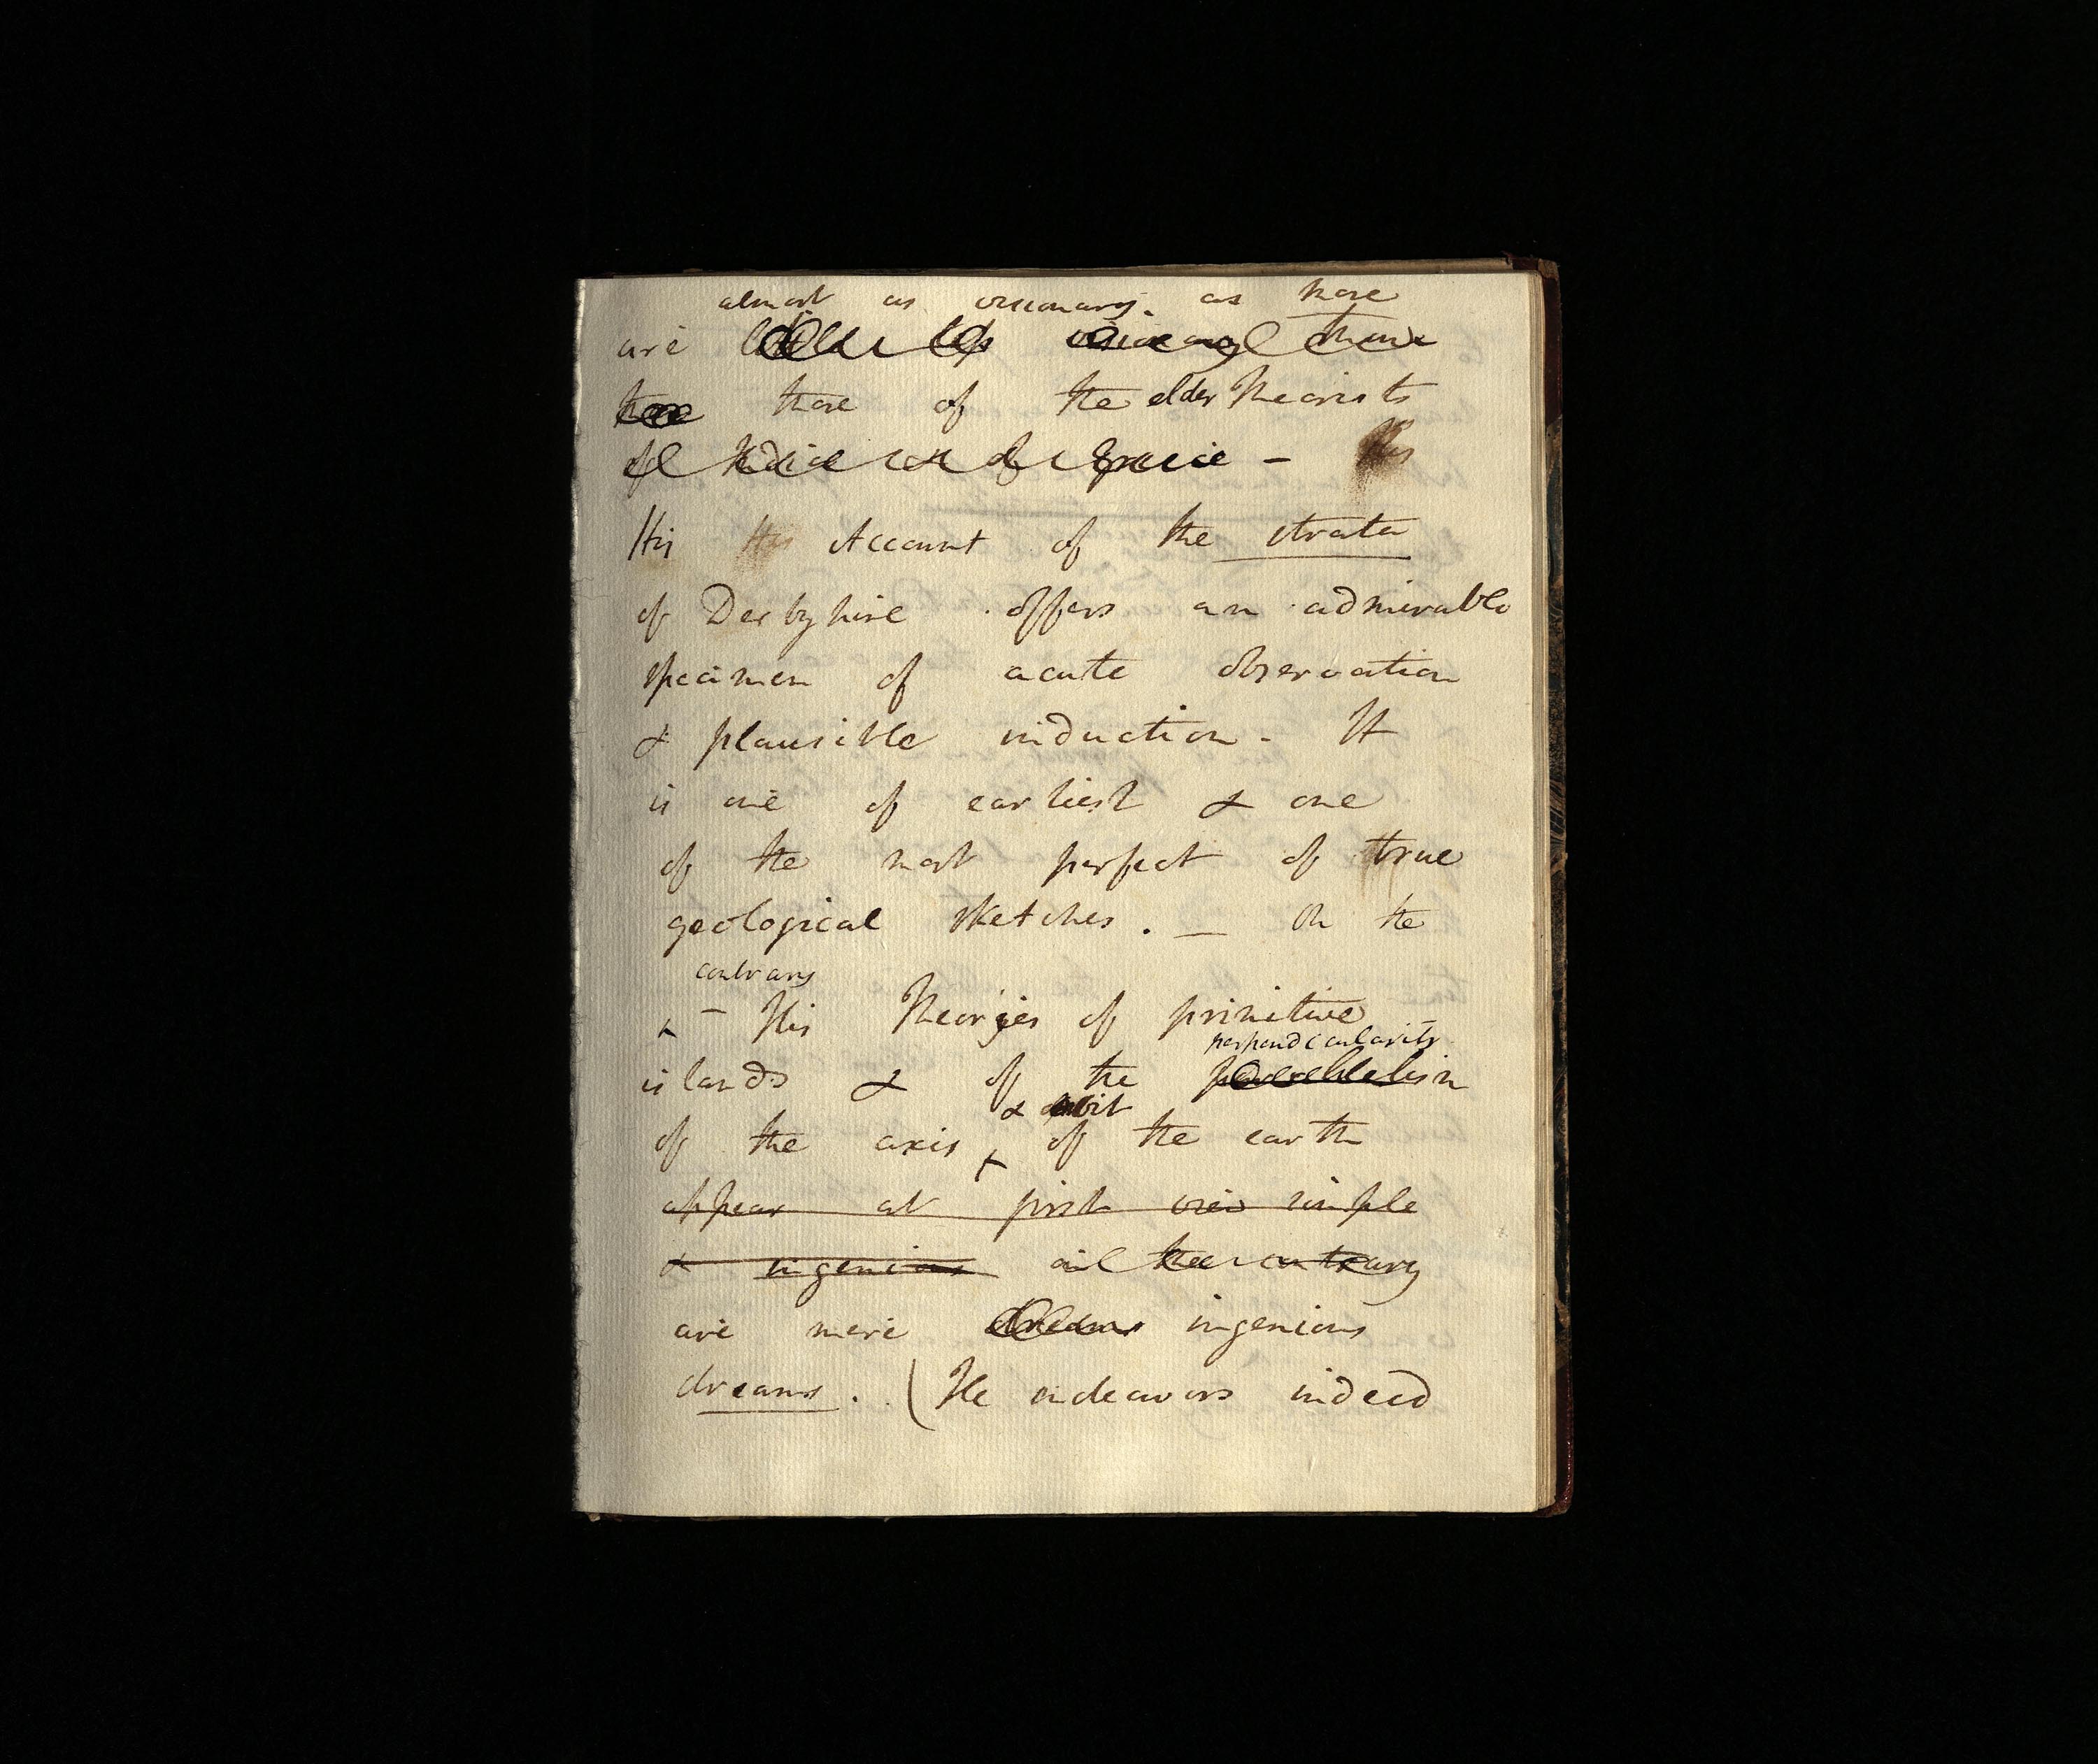 almost as visionary. as those
are little less visionary than
those those of the elder Theorists
of India or of Greece – His
His His Account of the strata
of Derbyhire offers an admirable
specimen of acute observation
& plausible induction. It
is one of earliest & one
of the most perfect of true
geological sketches. — On the
contrary
x – His Theories of primitive
perpendicularity
islands & of the parallelism
& orbit
of the axis x of the earth
appear at first view simple
& ingenious on the contrary
are mere dreams ingenious
dreams. (He endeavors indeed